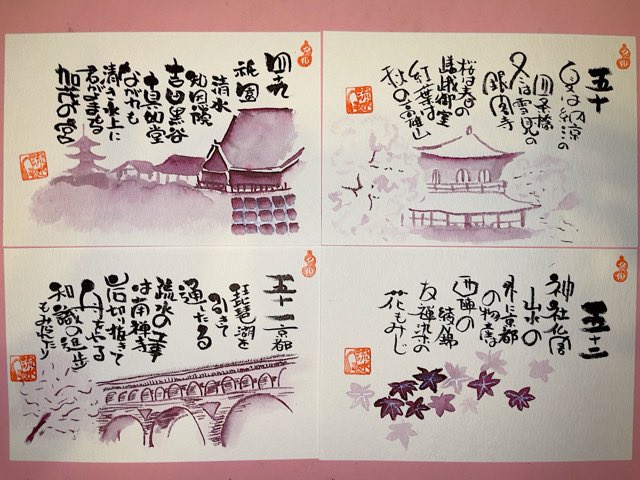 四十九
祇園
清水
知恩院
吉田黒谷
真如堂
ながれも
清き水上に
君がよまもる
加茂の宮
五十
夏は納涼の
四条橋
冬は雪見の
銀閣寺
桜は春の
嵯峨御室
紅葉は
秋の高雄山
五十一 京都
琵琶湖を
引きて
通したる
疏水の工事
は南禅寺
岩切り抜きて
舟をやる
知識の進歩
もみられたり
五十二
神社仏閣
山水の
外に京都
の物産は
西陣
織の綾錦
友禅染の
花もみじ